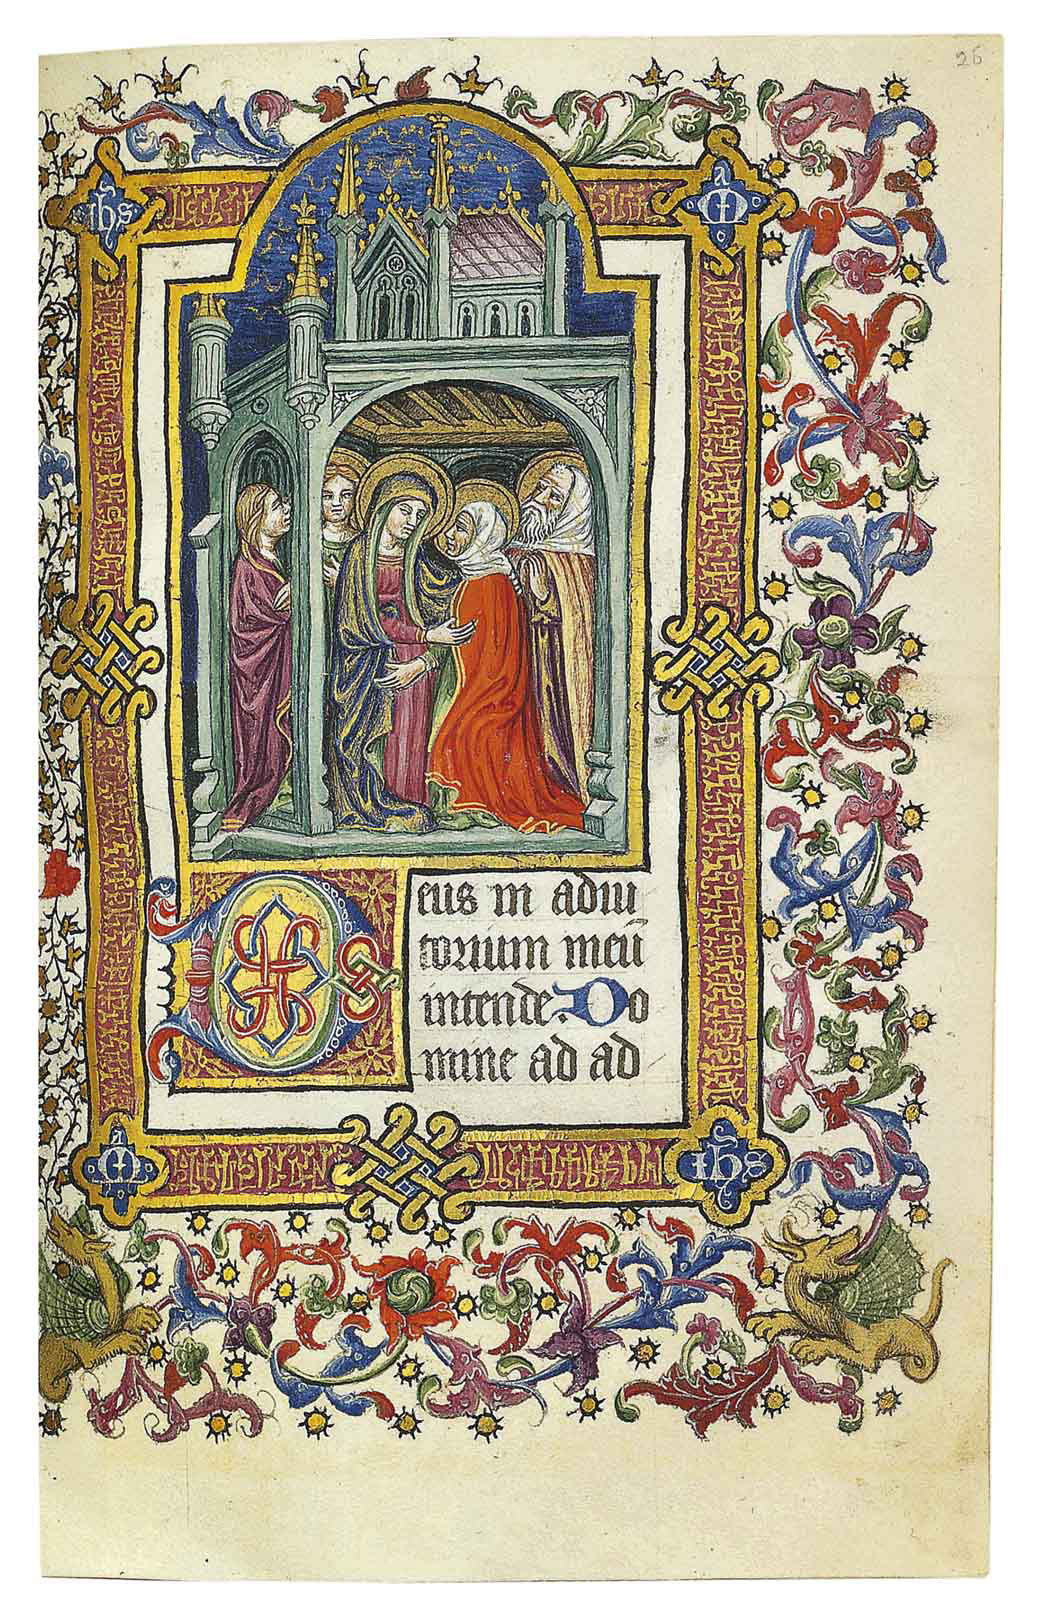 26
ihs M
Deus in adiu
torium meū
intende. Do
mine ad ad
M ihs